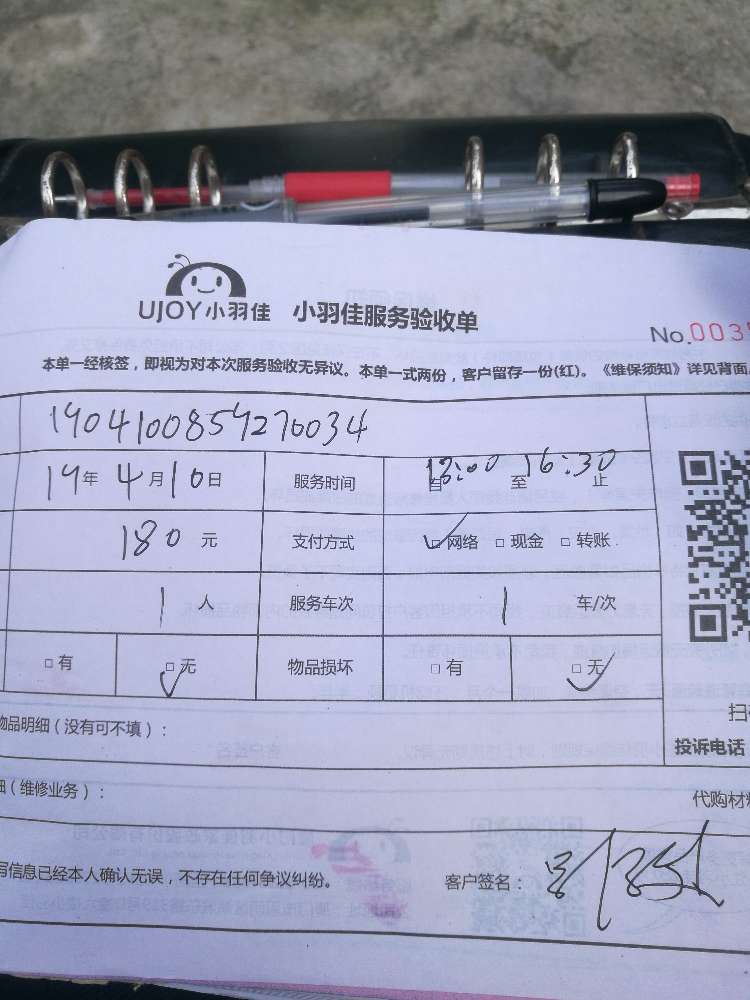 UJOY小羽佳 小羽佳服务验收单
No.003
本单一经核签，即视为对本次服务验收无异议。本单一式两份，客户留存一份(红)。《维保须知》详见背面。
1904100857270034
19年4月10日 服务时间 自13:00至16:30止
180元 支付方式 ☑网络 □现金 □转账
1人 服务车次 1车/次
□有 ☑无 物品损坏 □有 ☑无
扫
物品明细（没有可不填）：
投诉电话
（维修业务）：
代购材
写信息已经本人确认无误，不存在任何争议纠纷。 客户签名：